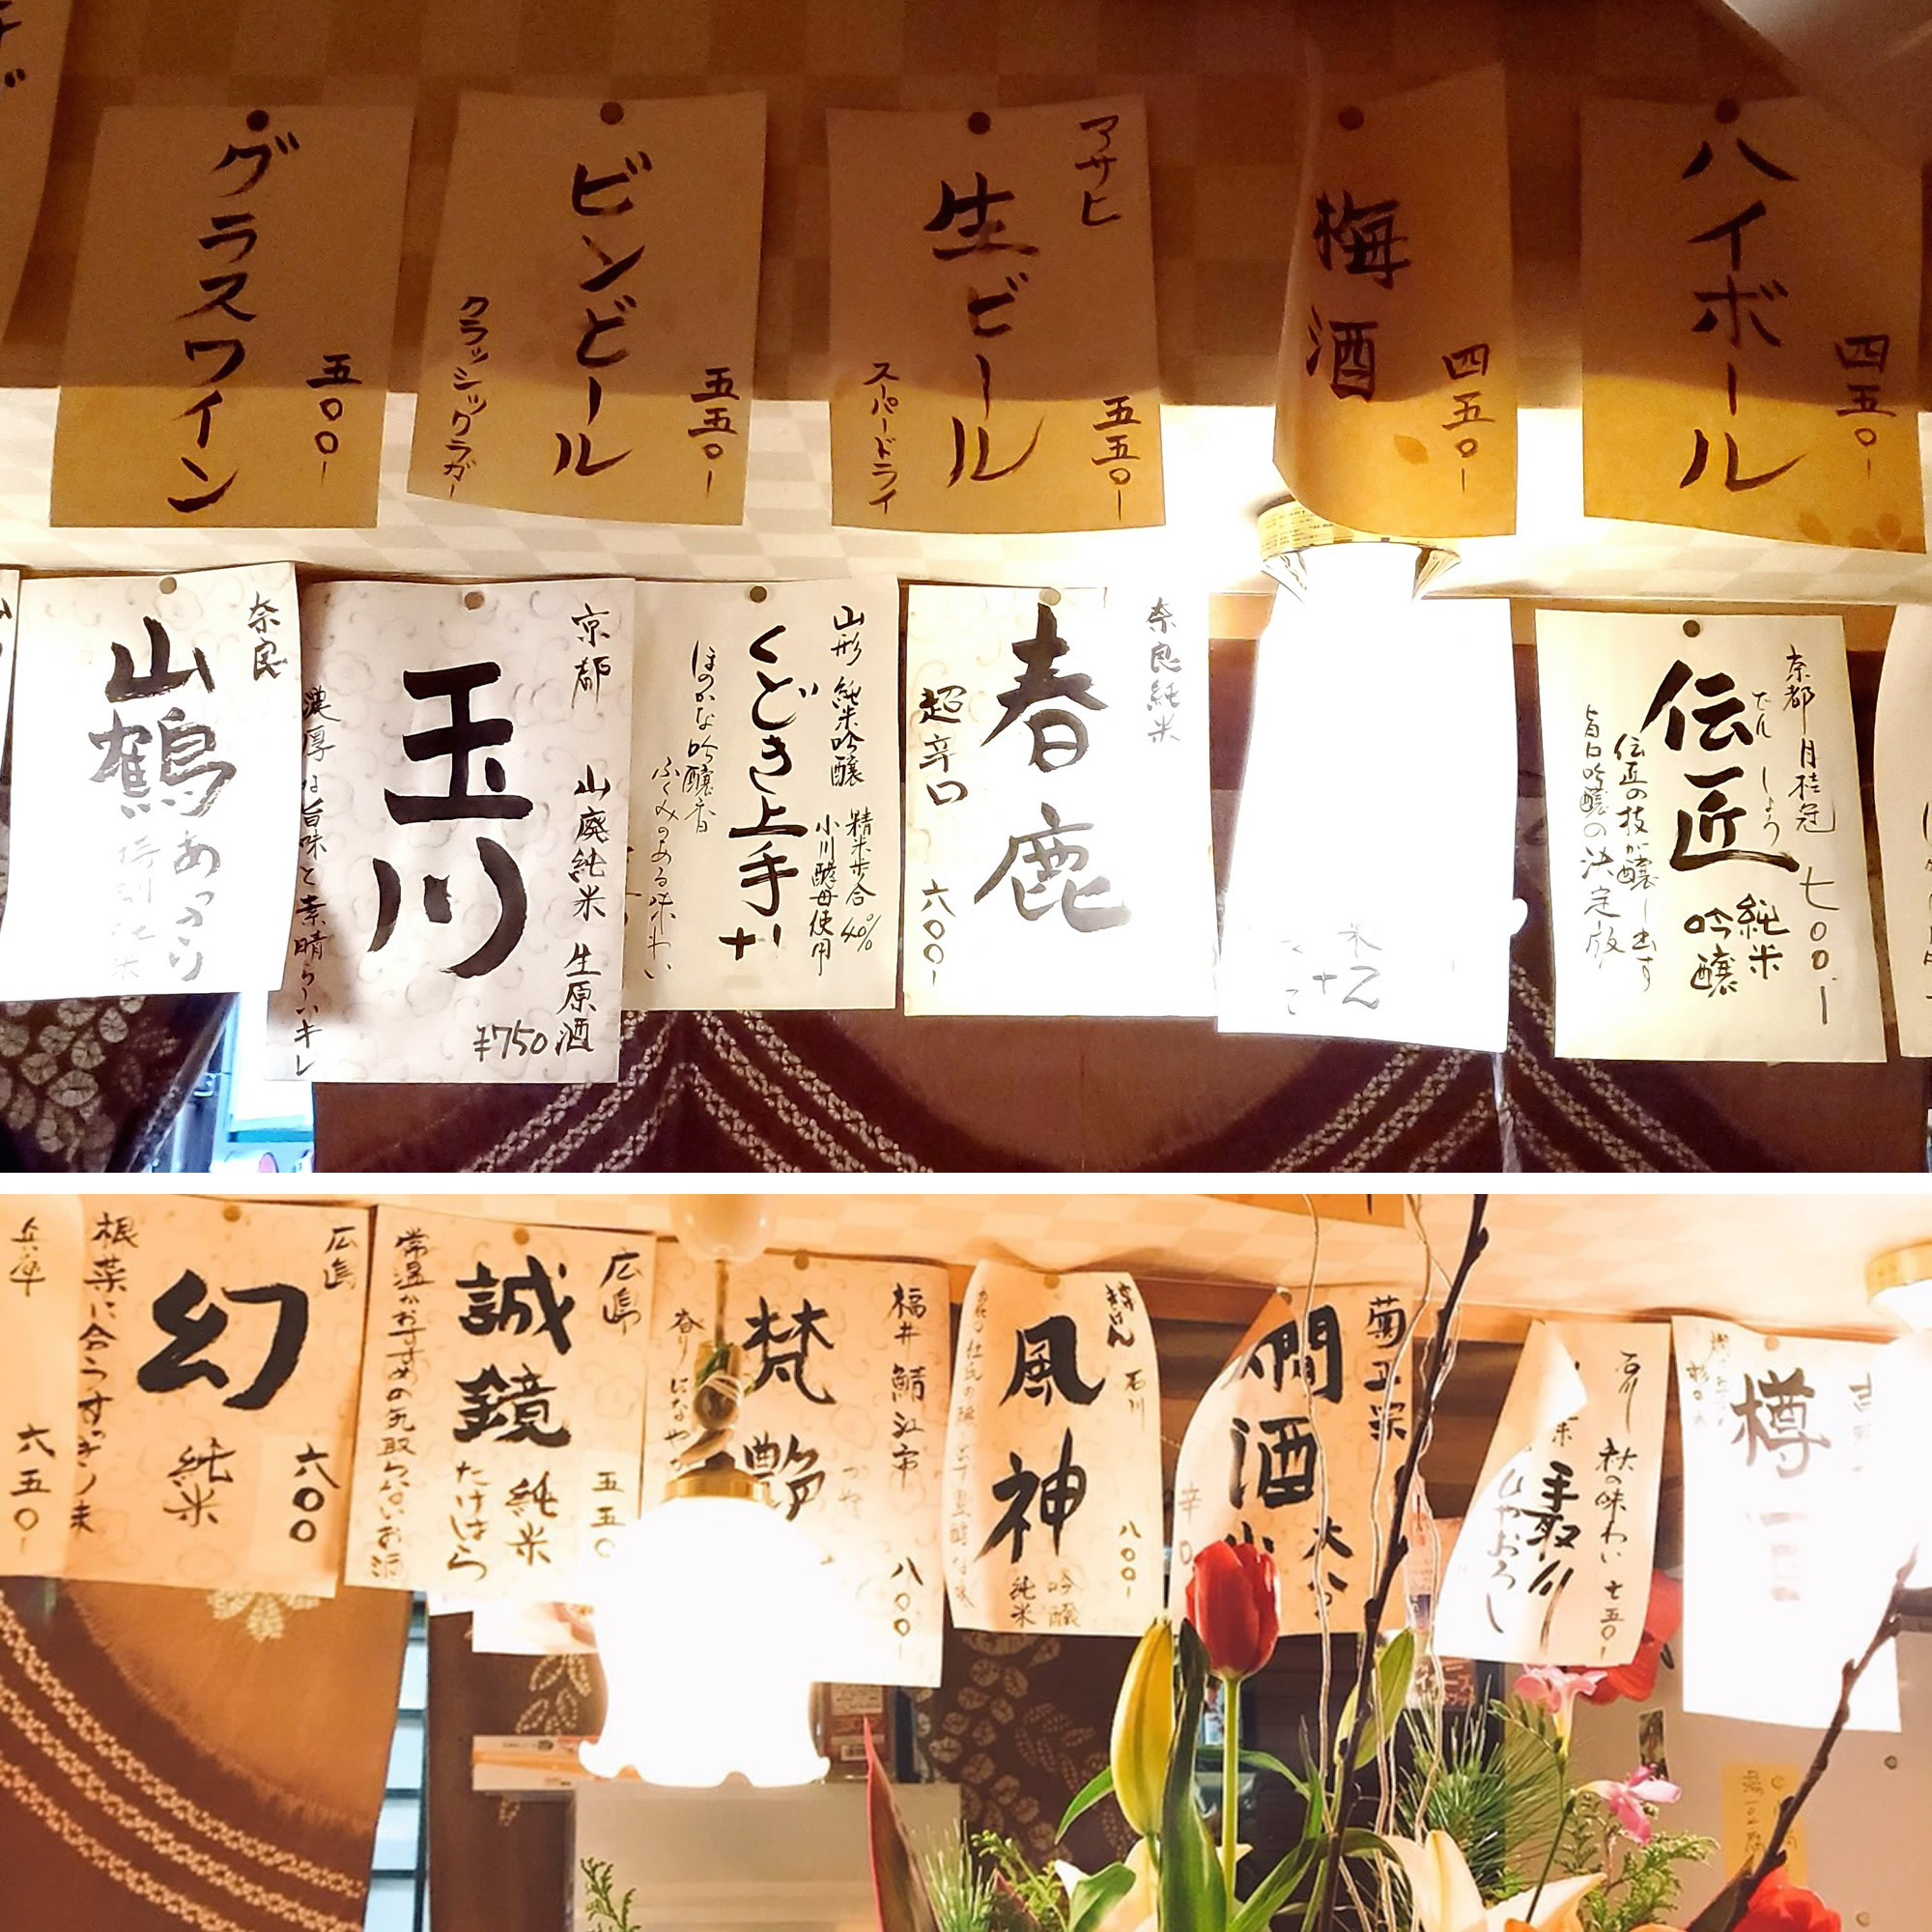 ハイボール
四五〇-
梅酒
四五〇-
アサヒ
生ビール
スーパードライ
五五〇-
ビンビール
クラッシックラガー
五五〇-
グラスワイン
五〇〇-
京都 月桂冠 七〇〇.-
でんしょう
伝匠
純米
吟醸
伝匠の技が醸し出す
旨口吟醸の決定版
奈良 純米
春鹿
超辛口 六〇〇-
山形 純米吟醸 精米歩合40%
小川酵母使用
くどき上手
ほのかな吟醸香
ふくみのある味わい
京都 山廃純米 生原酒
玉川
¥750
濃厚な旨味と素晴らしいキレ
奈良
山鶴
あっさり
樽
石川 秋の味わい 七五〇-
手取川
ひやおろし
菊正宗
燗酒
大
辛口
石川 八〇〇-
風神
吟醸
純米
福井 鯖江市 八〇〇-
梵
艶
つや
香り
広島 五五〇
誠鏡 純米
たけはら
常温がおすすめの気取らないお酒
広島 六〇〇
幻 純米
根菜に合うすっきり味
兵庫 六五〇-